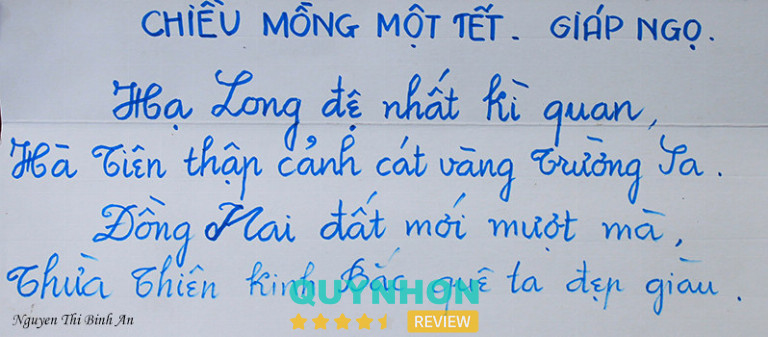 CHIỀU MỒNG MỘT TẾT. GIÁP NGỌ.
Hạ Long đệ nhất kì quan,
Hà Tiên thập cảnh cát vàng Trường Sa.
Đồng Nai đất mới mượt mà,
Thừa Thiên Kinh Bắc quê ta đẹp giàu.
QUYNHON
REVIEW
Nguyen Thi Binh An